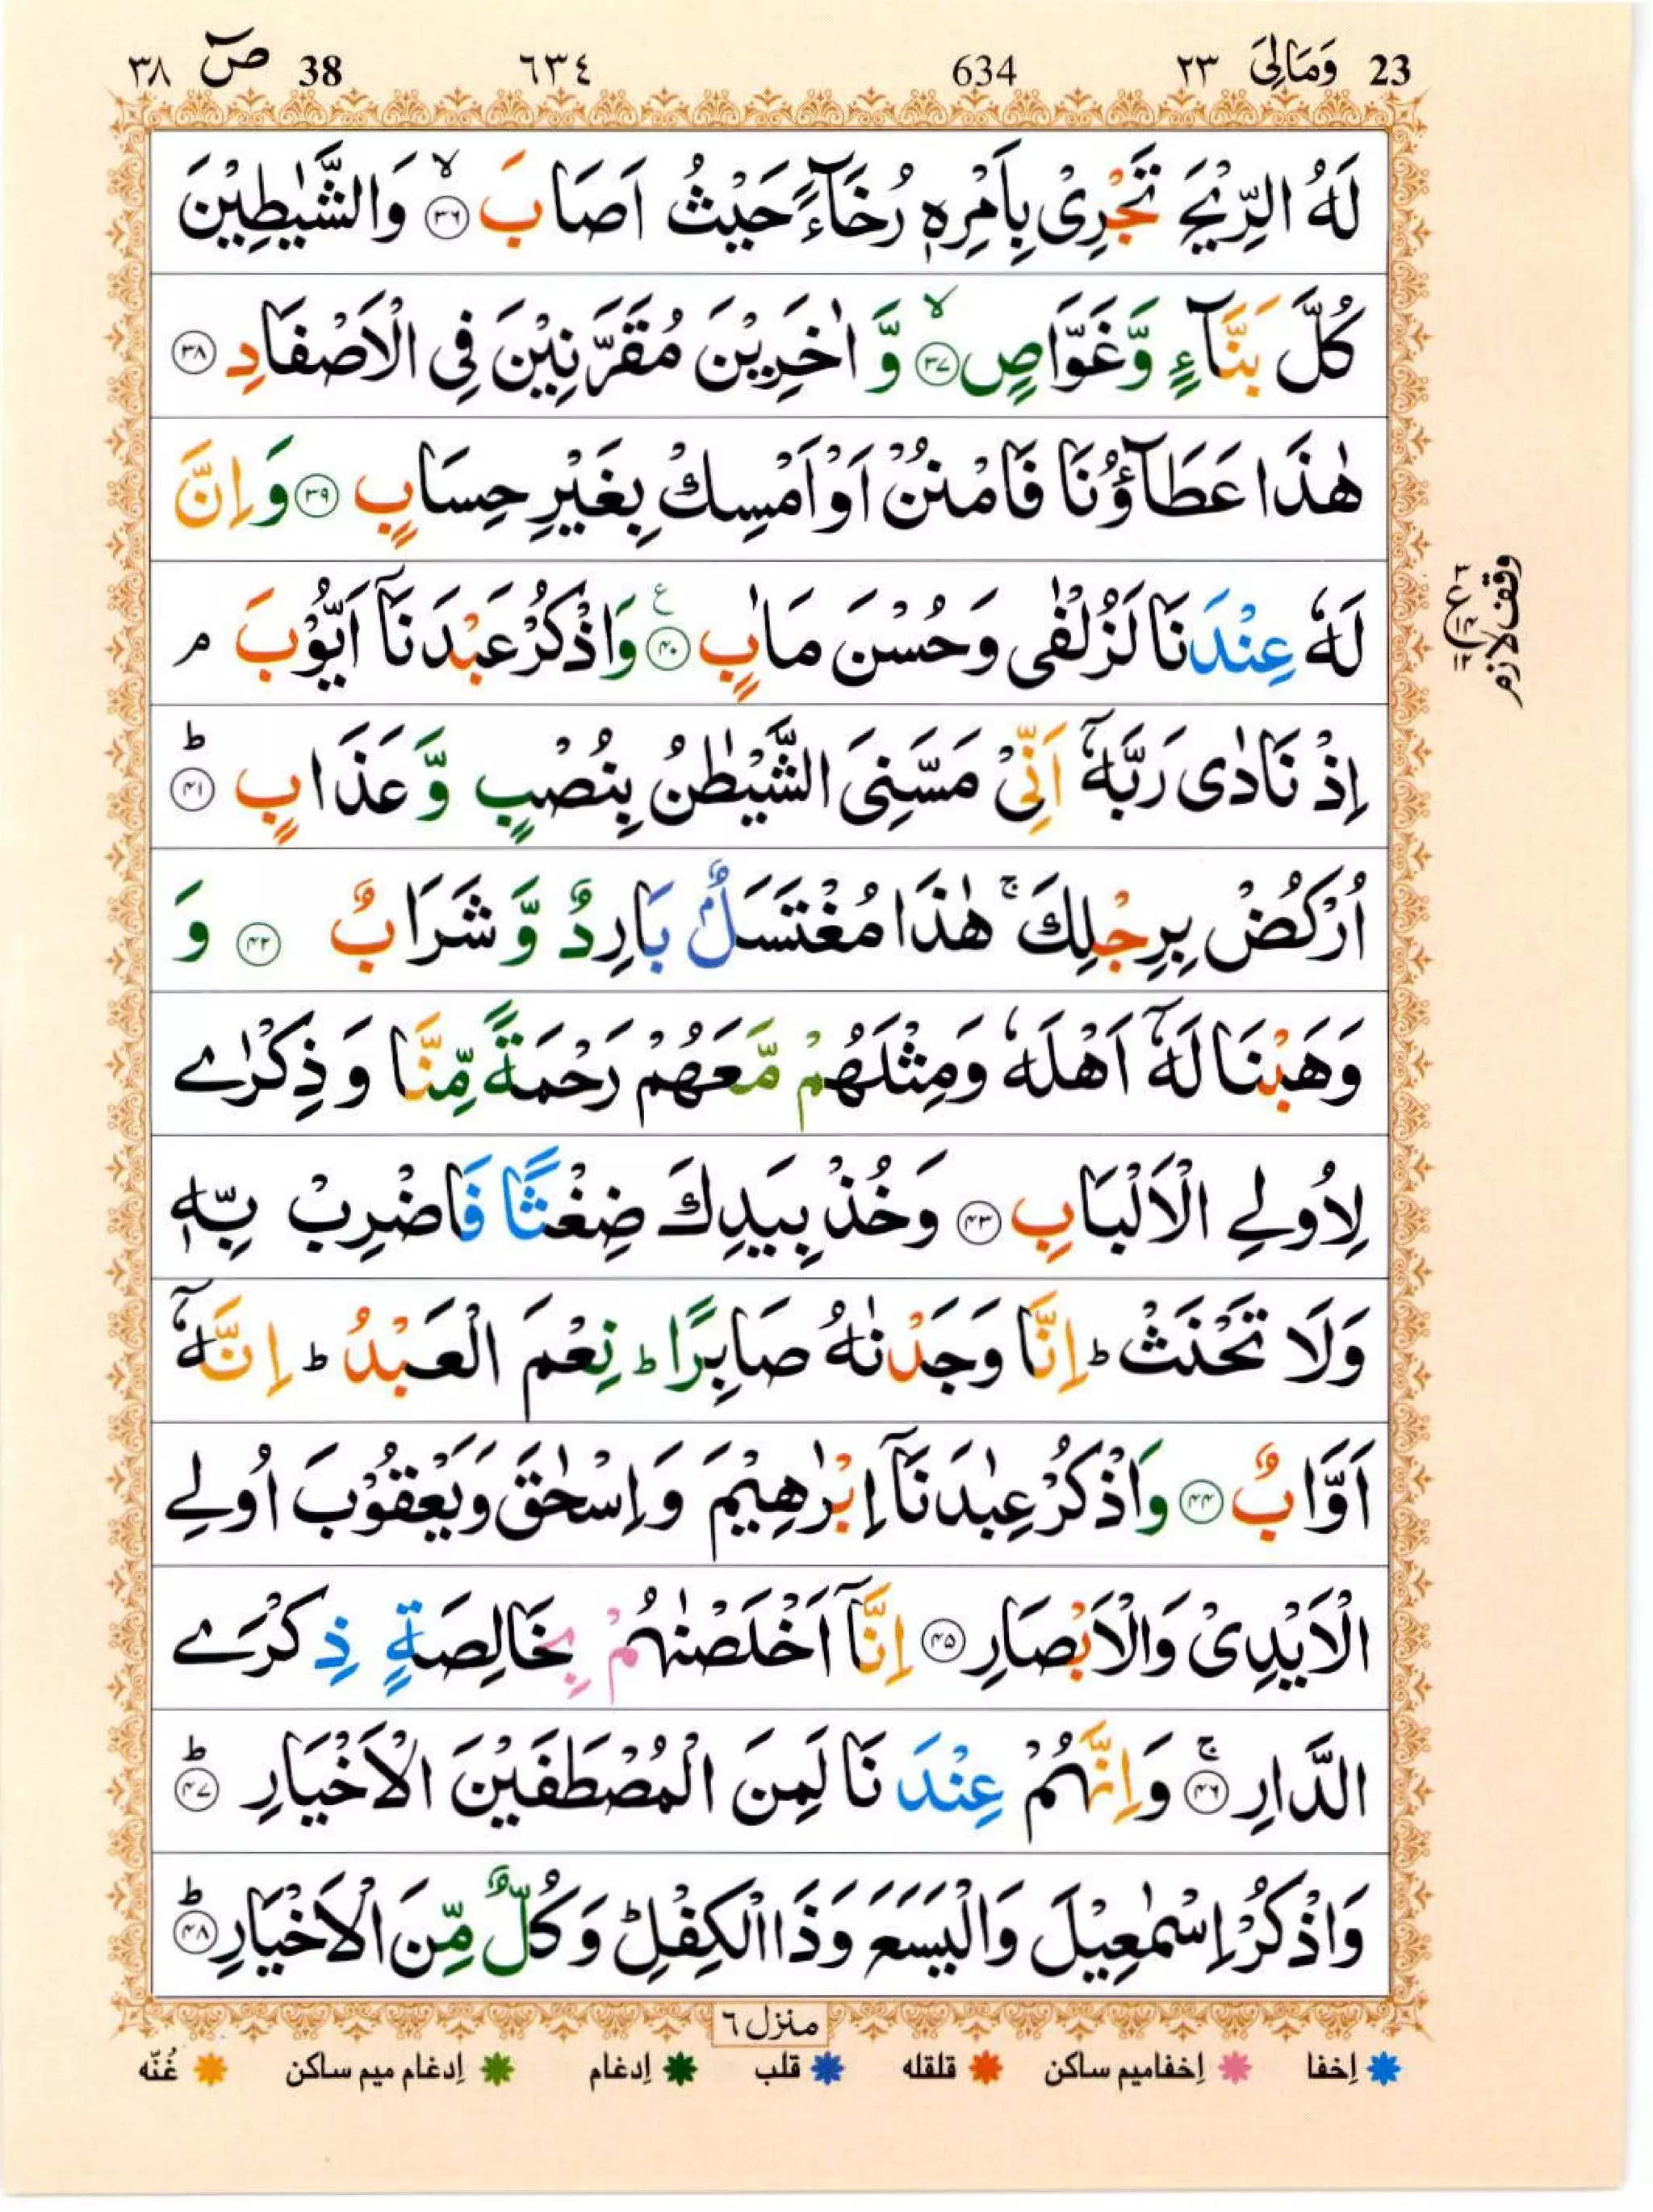 23 وَمَالِيَ ٢٣ 634 ٦٣٤ 38 صٓ ٣٨
لَهُ الرِّيْحَ تَجْرِيْ بِاَمْرِهٖ رُخَآءً حَيْثُ اَصَابَ ۙ﴿۳۶﴾ وَالشَّيٰطِيْنَ
كُلَّ بَنَّآءٍ وَّغَوَّاصٍ ۙ﴿۳۷﴾ وَّ اٰخَرِيْنَ مُقَرَّنِيْنَ فِي الْاَصْفَادِ ﴿۳۸﴾
هٰذَا عَطَآؤُنَا فَامْنُنْ اَوْ اَمْسِكْ بِغَيْرِ حِسَابٍ ﴿۳۹﴾ وَاِنَّ
لَهٗ عِنْدَنَا لَزُلْفٰى وَحُسْنَ مَاٰبٍ ﴿۴۰﴾ ع وَاذْكُرْ عَبْدَنَآ اَيُّوْبَ ۘ
وقف لازم
ع ٣ ١٤ ١٢
اِذْ نَادٰى رَبَّهٗٓ اَنِّيْ مَسَّنِيَ الشَّيْطٰنُ بِنُصْبٍ وَّعَذَابٍ ؕ﴿۴۱﴾
اُرْكُضْ بِرِجْلِكَ ۚ هٰذَا مُغْتَسَلٌۢ بَارِدٌ وَّشَرَابٌ ﴿۴۲﴾ وَ
وَهَبْنَا لَهٗٓ اَهْلَهٗ وَمِثْلَهُمْ مَّعَهُمْ رَحْمَةً مِّنَّا وَذِكْرٰے
لِاُولِے الْاَلْبَابِ ﴿۴۳﴾ وَخُذْ بِيَدِكَ ضِغْثًا فَاضْرِبْ بِّهٖ
وَلَا تَحْنَثْ ؕ اِنَّا وَجَدْنٰهُ صَابِرًا ؕ نِعْمَ الْعَبْدُ ؕ اِنَّهٗٓ
اَوَّابٌ ﴿۴۴﴾ وَاذْكُرْ عِبٰدَنَآ اِبْرٰهِيْمَ وَاِسْحٰقَ وَيَعْقُوْبَ اُولِے
الْاَيْدِيْ وَالْاَبْصَارِ ﴿۴۵﴾ اِنَّآ اَخْلَصْنٰهُمْ بِخَالِصَةٍ ذِكْرَے
الدَّارِ ۚ﴿۴۶﴾ وَاِنَّهُمْ عِنْدَنَا لَمِنَ الْمُصْطَفَيْنَ الْاَخْيَارِ ؕ﴿۴۷﴾
وَاذْكُرْ اِسْمٰعِيْلَ وَالْيَسَعَ وَذَا الْكِفْلِ ؕ وَكُلٌّ مِّنَ الْاَخْيَارِ ؕ﴿۴۸﴾
منزل ٦
اِخفا اِخفامیم ساکن قلقله قلب اِدغام اِدغام میم ساکن غُنّه